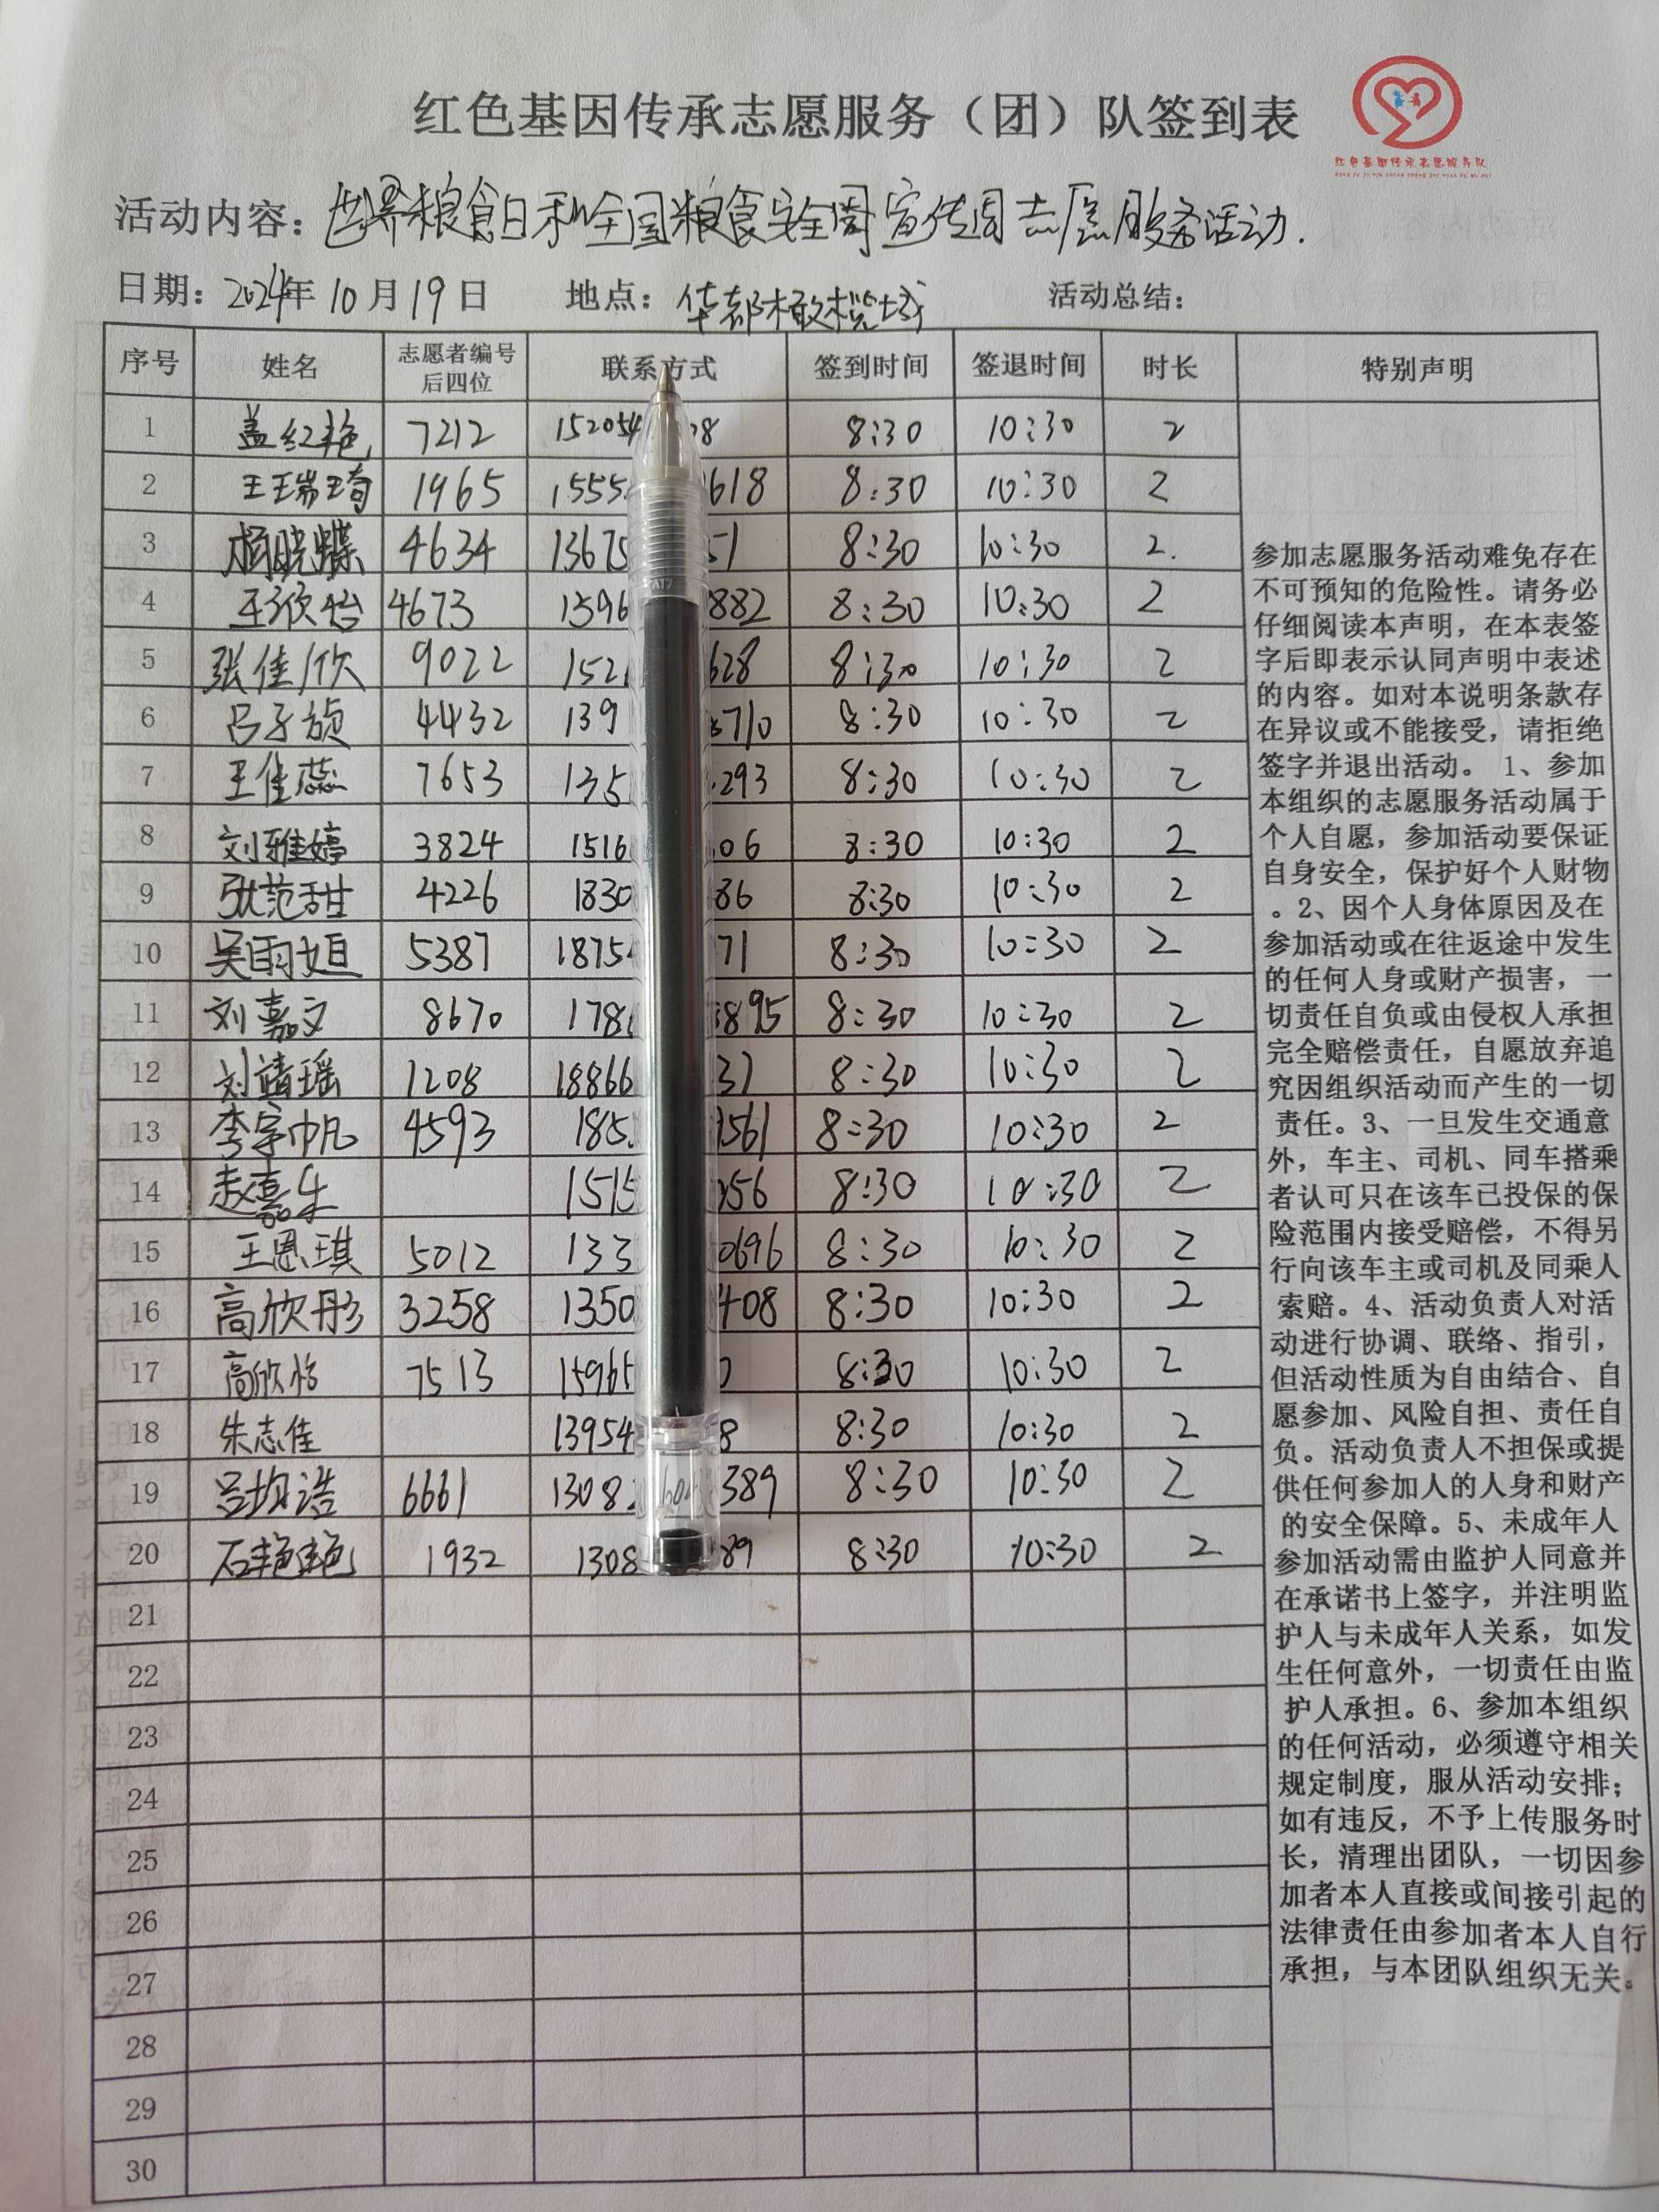 红色基因传承志愿服务（团）队签到表
红色基因传承志愿服务队
活动内容：世界粮食日和全国粮食安全周宣传周志愿服务活动.
日期：2024年10月19日 地点：华都橄榄城 活动总结：
序号 姓名 志愿者编号后四位 联系方式 签到时间 签退时间 时长 特别声明
1 盖红艳 7212 152054 08 8:30 10:30 2
2 王瑞琦 1965 1555 618 8:30 10:30 2
3 杨晓蝶 4634 13675 51 8:30 10:30 2.
4 王欣怡 4673 1596 882 8:30 10:30 2
5 张佳欣 9022 152 628 8:30 10:30 2
6 吕子旋 4432 139 710 8:30 10:30 2
7 王佳蕊 7653 135 293 8:30 10:30 2
8 刘雅婷 3824 1516 06 8:30 10:30 2
9 张范甜 4226 1830 86 8:30 10:30 2
10 吴雨姮 5387 1875 71 8:30 10:30 2
11 刘嘉文 8670 178 895 8:30 10:30 2
12 刘靖瑶 1208 18866 31 8:30 10:30 2
13 李宇帆 4593 185 561 8:30 10:30 2
14 赵嘉乐 1515 56 8:30 10:30 2
15 王恩琪 5012 133 0696 8:30 10:30 2
16 高欣彤 3258 1350 408 8:30 10:30 2
17 高欣怡 7513 15965 0 8:30 10:30 2
18 朱志佳 13954 8 8:30 10:30 2
19 吕均浩 6661 1308 389 8:30 10:30 2
20 石艳艳 1932 1308 89 8:30 10:30 2
21
22
23
24
25
26
27
28
29
30
参加志愿服务活动难免存在
不可预知的危险性。请务必
仔细阅读本声明，在本表签
字后即表示认同声明中表述
的内容。如对本说明条款存
在异议或不能接受，请拒绝
签字并退出活动。 1、参加
本组织的志愿服务活动属于
个人自愿，参加活动要保证
自身安全，保护好个人财物
。2、因个人身体原因及在
参加活动或在往返途中发生
的任何人身或财产损害，一
切责任自负或由侵权人承担
完全赔偿责任，自愿放弃追
究因组织活动而产生的一切
责任。3、一旦发生交通意
外，车主、司机、同车搭乘
者认可只在该车已投保的保
险范围内接受赔偿，不得另
行向该车主或司机及同乘人
索赔。4、活动负责人对活
动进行协调、联络、指引，
但活动性质为自由结合、自
愿参加、风险自担、责任自
负。活动负责人不担保或提
供任何参加人的人身和财产
的安全保障。5、未成年人
参加活动需由监护人同意并
在承诺书上签字，并注明监
护人与未成年人关系，如发
生任何意外，一切责任由监
护人承担。6、参加本组织
的任何活动，必须遵守相关
规定制度，服从活动安排；
如有违反，不予上传服务时
长，清理出团队，一切因参
加者本人直接或间接引起的
法律责任由参加者本人自行
承担，与本团队组织无关。